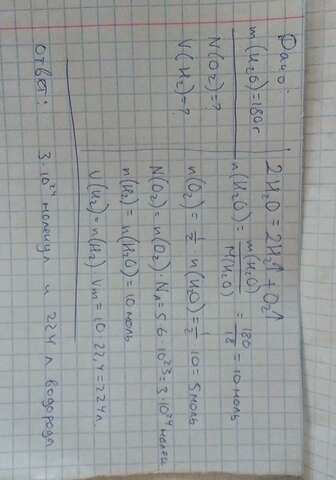 Дано:
m(H₂O)=180г
N(O₂)=?
V(H₂)=?
2H₂O = 2H₂↑ + O₂↑
n(H₂O) = m(H₂O)/M(H₂O) = 180/18 = 10 моль
n(O₂) = 1/2 n(H₂O) = 1/2 · 10 = 5 моль
N(O₂) = n(O₂) · Nₐ = 5 · 6 · 10²³ = 3 · 10²⁴ молек
n(H₂) = n(H₂O) = 10 моль
V(H₂) = n(H₂) · Vm = 10 · 22,4 = 224 л
Ответ: 3 · 10²⁴ молекул и 224 л водорода